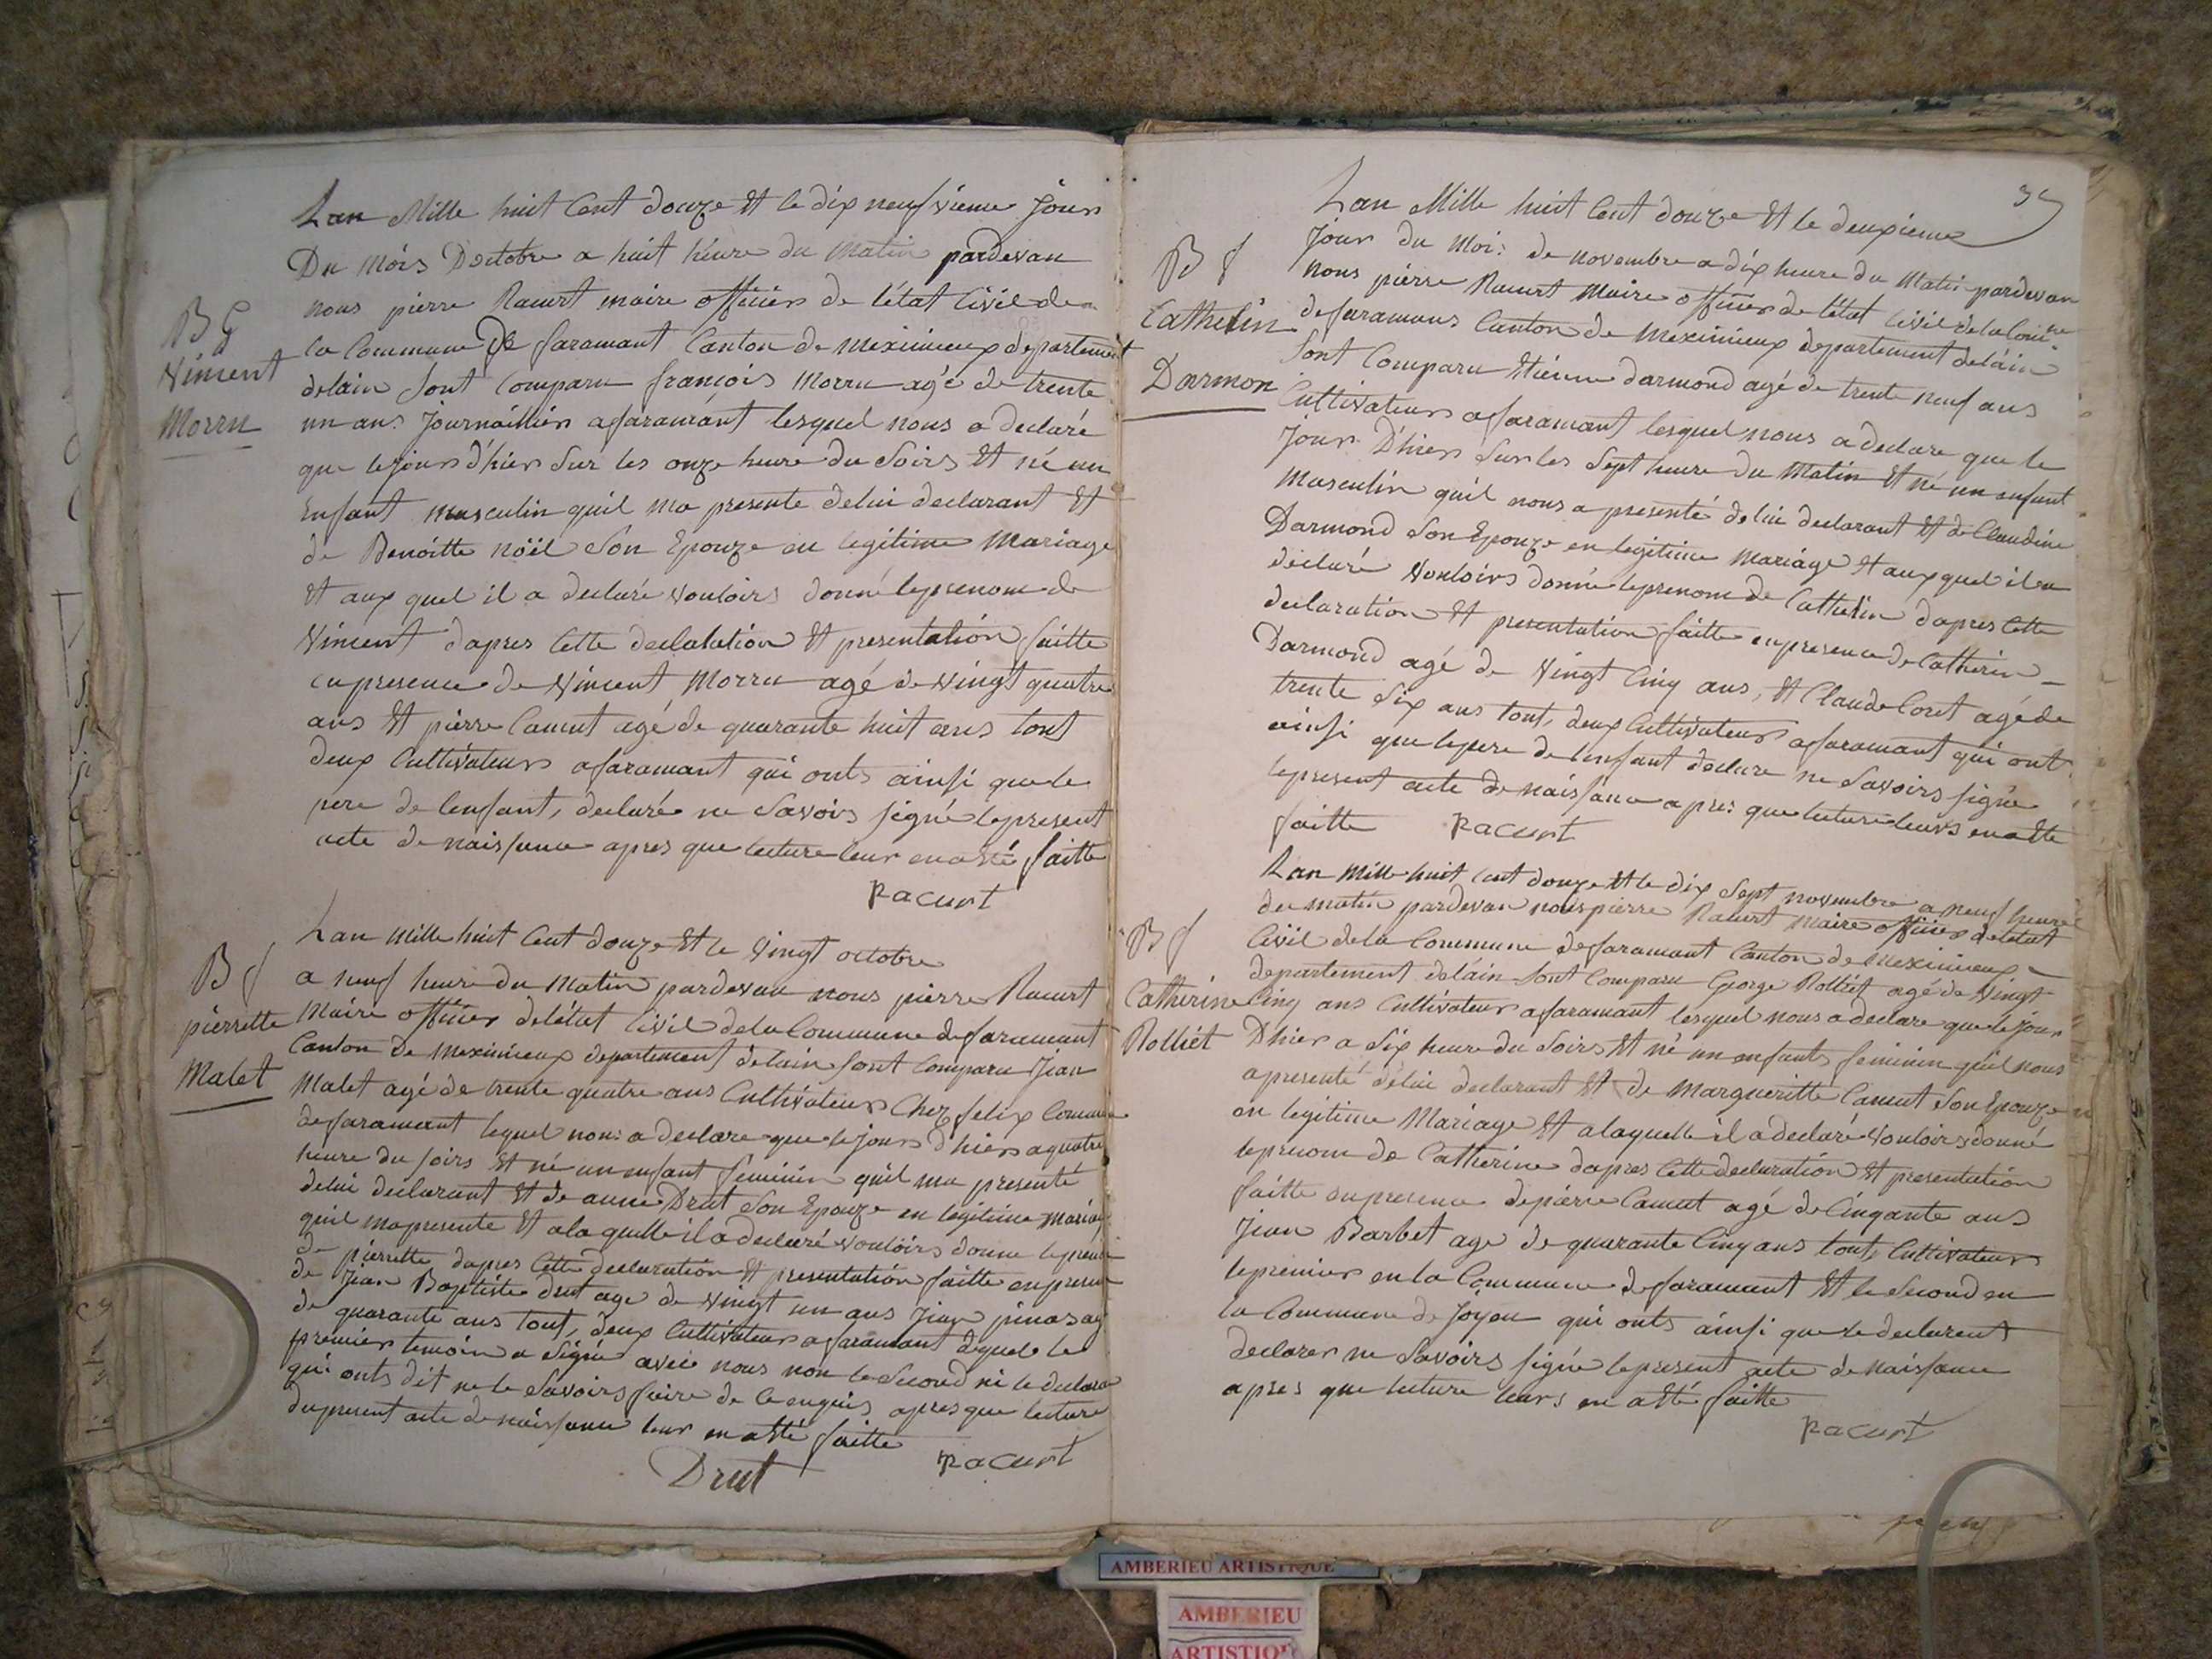 Lan Mille huit Cent douze Et le dix neufvieme Jour
Du Mois Doctobre a huit heure du Matin pardevan
nous pierre Racurt maire officier de létat Civil de
la Commune De faramant Canton de Meximieux departement
delain Sont Comparu françois Morru agé de trente
un ans Journaillier afaramant lesquel nous a declaré
que lejour d'hier Sur les onze heure du Soirs Et né un
Enfant masculin quil ma presente delui declarant Et
de Benoitte nöel Son Epouze en legitime Mariage
Et aux quel il a declaré vouloirs donné leprenom de
Vincent dapres Cette declalation Et presentation faitte
enpresence de Vincent Morru agé de Vingt quatre
ans Et pierre Camut agé de quarante huit ans tout
deux Cultivateurs afaramant qui onts ainsi que le
pere de lenfant, declaré ne Savoirs signé lepresent
acte de naissance apres que lecture leur en a Eté faitte
Racurt
BG
Vincent
Morru
Lan mille huit Cent douze Et le Vingt octobre
a neuf heure du Matin pardevan nous pierre Racurt
Maire officier delétat Civil dela Commune defaramant
Canton de Meximieux departement delain Sont Comparu Jean
Malet agé de trente quatre ans Cultivateur Chez felix
defaramant lequel nous a declare que lejour d'hier a quatre
heure du soirs Et né un enfant feminin quil ma presenté
delui declarant Et de anne Drut Son Epouze en legitime mariage
quil mapresente Et alaquelle il a declaré vouloirs donne leprenom
de pierrette dapres Cette declaration Et presentation faitte enpresence
de Jean Baptiste drut age de Vingt un ans Jean
de quarante ans tout, deux Cultivateurs afaramant dequel le
premier temoin a Signé avec nous non le Second ni le declara
qui onts dit ne le Savoirs faire de Ce enquis apres que lecture
dupresent acte denaissance leur en a Eté faitte
Drut Racurt
B f
pierrette
Malet
39
Lan Mille huit Cent douze Et le deuxieme
Jour du Mois de novembre a dix heure du Matin pardevan
nous pierre Racurt Maire officier de létat Civil dela Comne
defaramans Canton de Meximieux departement delain
Sont Comparu Etienne darmond agé de trente neuf ans
Cultivateur afaramant lesquel nous a declare que le
Jour D'hier Sur les Sept heure du Matin Et né un enfant
Masculin quil nous a presenté delui declarant Et de Claudine
Darmond Son Epouze en legitime Mariage Et aux quel il a
declaré Vouloirs donné leprenom de Cathelin dapres Cette
declaration Et presentation faitte enpresence de Catherin
Darmond agé de Vingt Cinq ans, Et Claude Coret agé de
trente Six ans tout, deux Cultivateurs afaramant qui ont
ainsi que lepere de lenfant declare ne Savoirs signé
lepresent acte de naissance apres que lecture leurs en a Ete
faitte Racurt
B f
Cathelin
Darmon
Lan mille huit Cent douze Et le dix Sept novembre a neuf heure
du matin pardevan nous pierre Racurt Maire officier de létat
Civil dela Commune defaramant Canton de Meximieux
departement delain Sont Comparu George Rolliet agé de Vingt
Cinq ans Cultivateur afaramant lesquel nous a declare que lejour
D'hier a Six heure du Soirs Et né un enfants feminin quil nous
apresenté delui declarant Et de Margueritte Camut Son Epouze
en legitime Mariage Et alaquelle il a declaré Vouloirs donné
leprenom de Catherine dapres Cette declaration Et presentation
faitte enpresence depierre Camut agé de Cinqante ans
Jean Barbet age de quarante Cinq ans tout, Cultivateur
lepremier en la Commune defaramant Et le Second en
la Commune de Joyeu qui onts ainsi que le declarent
declarer ne Savoirs signé lepresent acte de naissance
apres que lecture leurs en a Eté faitte
Racurt
B f
Catherine
Rolliet
AMBERIEU ARTISTIQUE
AMBERIEU
ARTISTIQUE